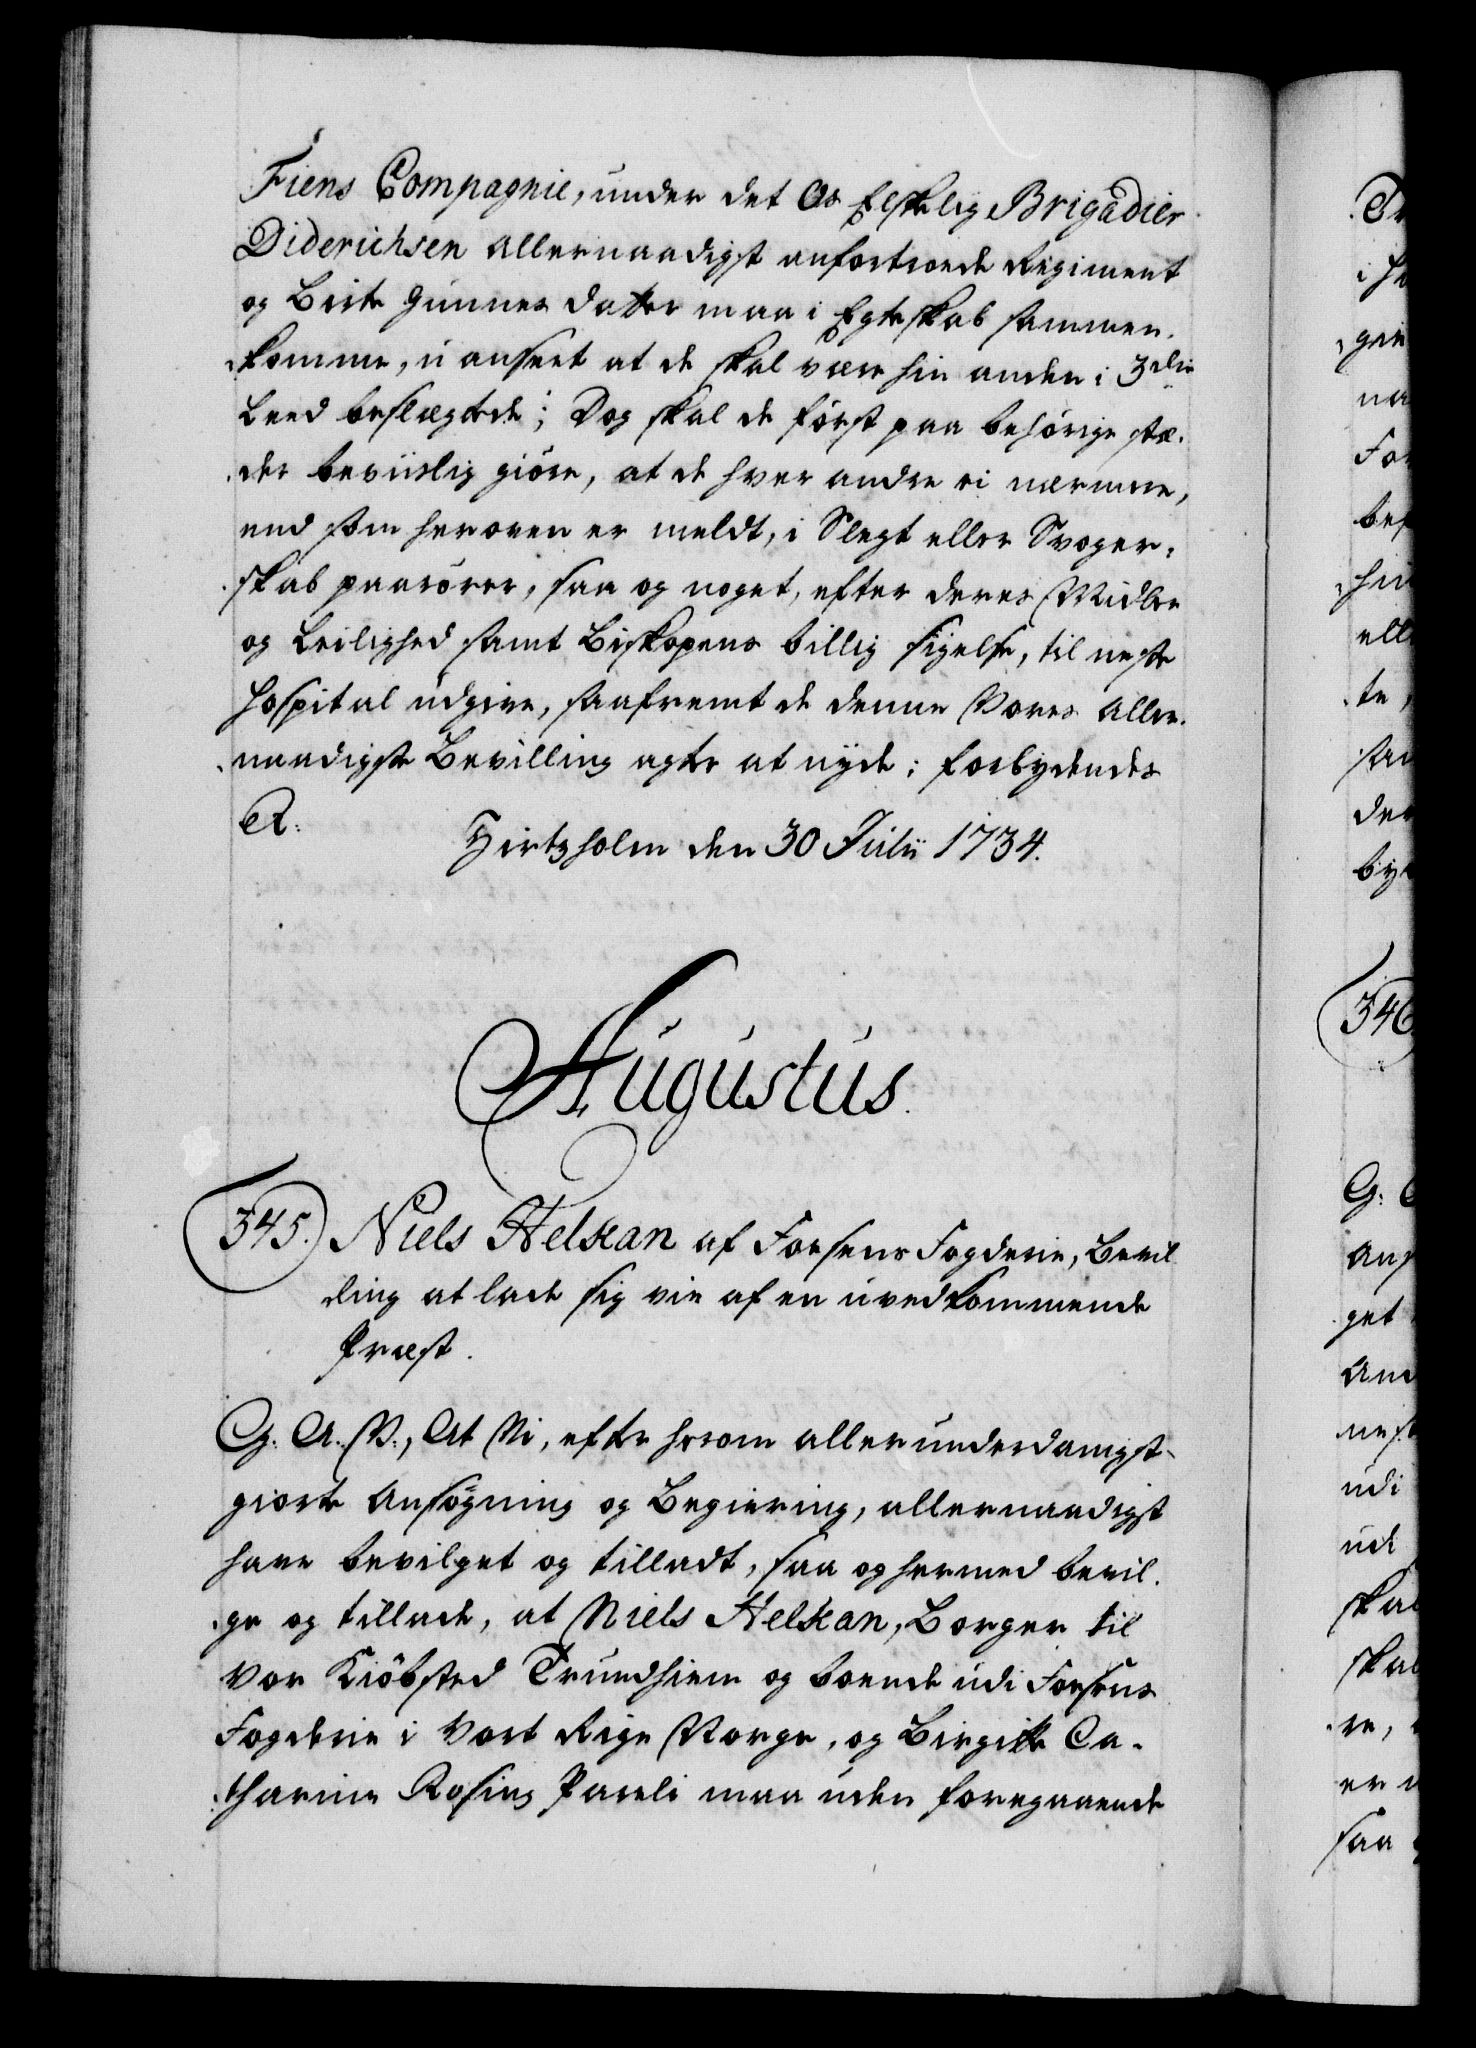 Fiens Compagnie, under det Os Elskelig Brigadier
Diderichsen allernaadigst anfortroede Regiment
og Birte Gunnersdatter maa i Egteskab sammen-
komme, u anseet at de skal være hin anden i 3die
Leed beslægtede; Dog skal de først paa behørige stæ-
der beviislig giøre, at de hver andre ei nærmere,
end som heroven er meldt, i Slegt eller Svoger-
skab paarører, saa og noget, efter deres Midler
og Leilighed samt Biskopens billig sigelse, til neste
Hospital udgive, saafremt de denne Vores aller-
naadigste Bevilling agter at nyde; forbydendes
A. Hirtzholm den 30 Julii 1734.
Augustus.
345. Niels Helkan af Fosens Fogderie, Bevil
ling at lade sig vie af en uvedkommende
Præst.
G: A: V:, At Vi, efter herom allerunderdanigst
giorte Ansøgning og Begiering, allernaadigst
have bevilget og tilladt, saa og hermed bevil-
ge og tillade, at Niels Helkan, Borger til
Vor Kiøbsted Trundhiem og boende udi Fosens
Fogderie i Vort Rige Norge, og Birgitte Ca-
tharine Rosing Pareli maa uden foregaaende
346.